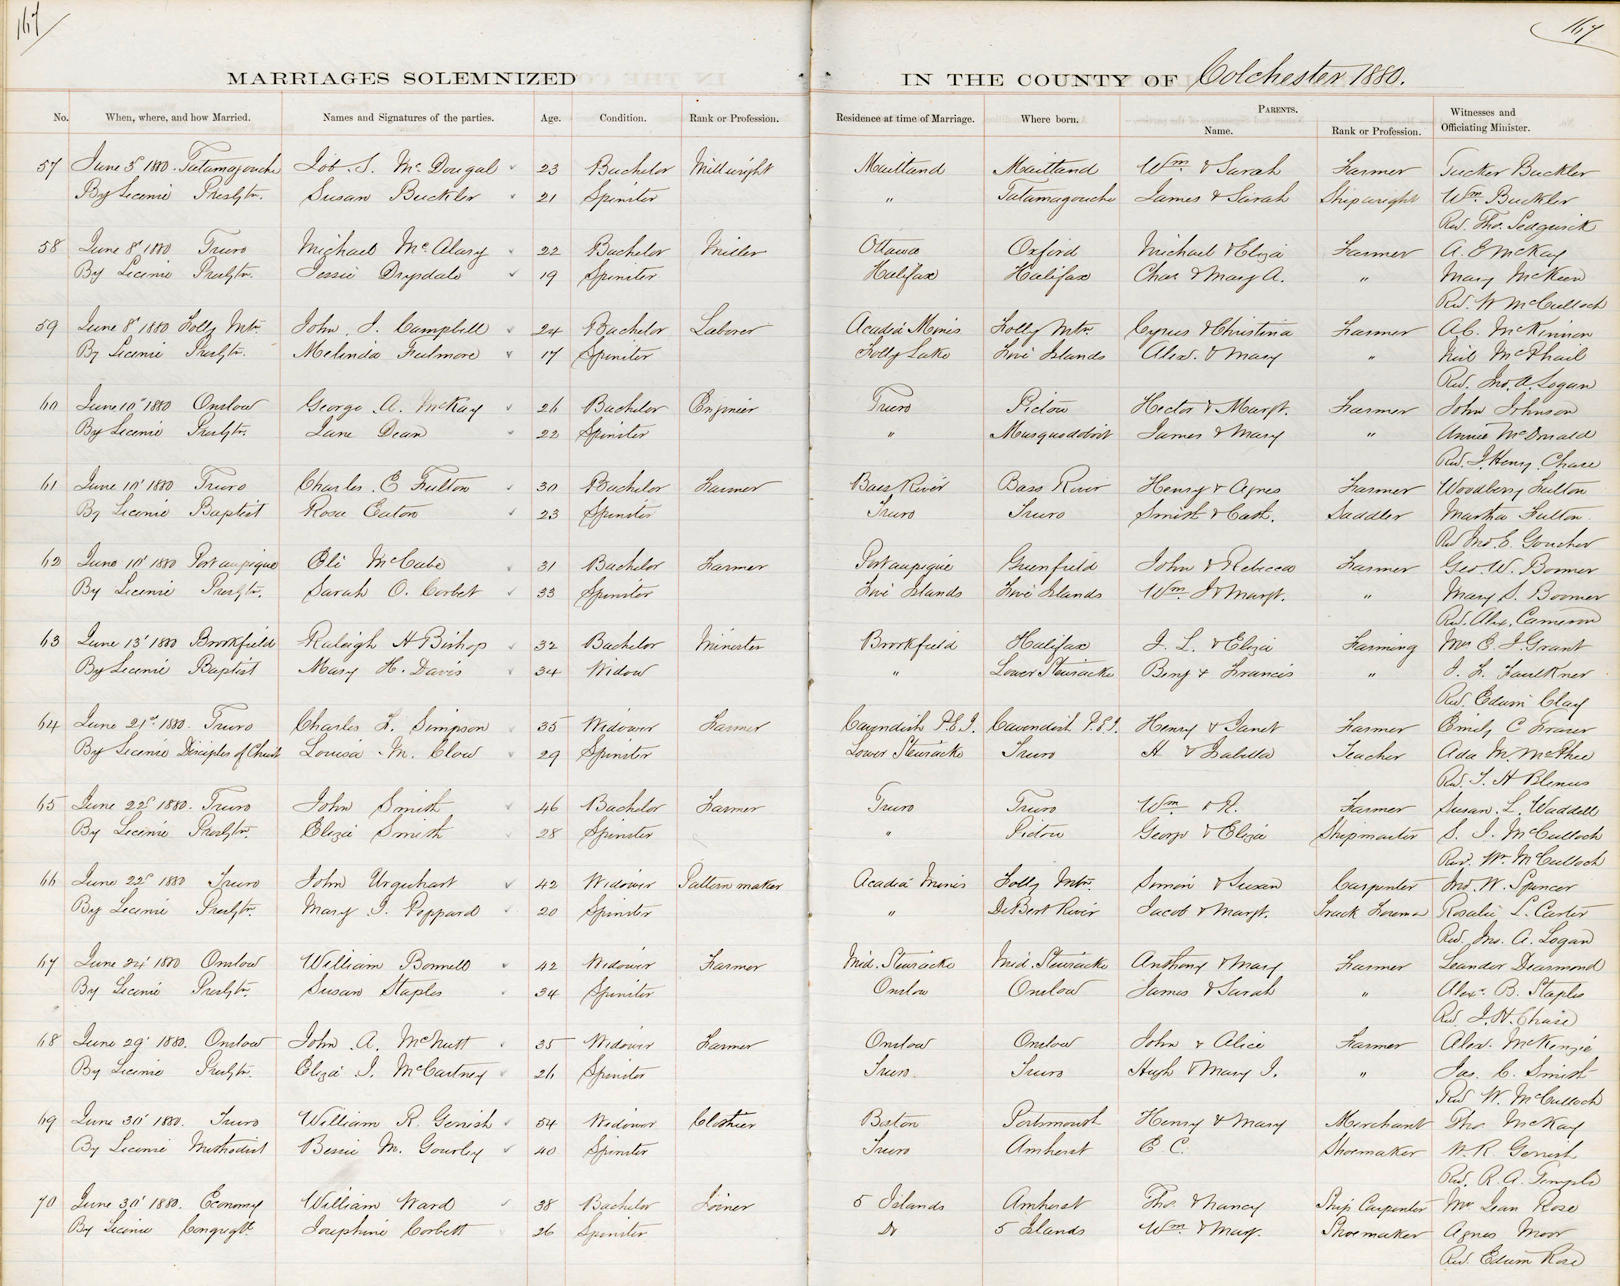 167 167
MARRIAGES SOLEMNIZED IN THE COUNTY OF Colchester 1880.
No. When, where, and how Married. Names and Signatures of the parties. Age. Condition. Rank or Profession. Residence at time of Marriage. Where born. PARENTS. Name. Rank or Profession. Witnesses and Officiating Minister.
57 June 5' 1880. Tatamagouche Job. S. McDougal 23 Bachelor Millwright Maitland Maitland Wm. & Sarah Farmer Tucker Buckler
By License Presbytn. Susan Buckler 21 Spinster " Tatamagouche James & Sarah Shipwright Wm. Buckler
Rev. Tho. Sedgwick
58 June 8' 1880 Truro Michael McAlary 22 Bachelor Miller Ottawa Oxford Michael & Eliza Farmer A. E McKay
By License Presbytn. Jessie Drysdale 19 Spinster Halifax Halifax Chas & Mary A. " Mary McKeen
Rev. W McCulloch
59 June 8' 1880 Folly Mtn. John J. Campbell 24 Bachelor Laborer Acadia Mines Folly Mtn. Cyrus & Christina Farmer A. C. McKinnon
By License Presbytn. Melinda Fulmore 17 Spinster Folly Lake Five Islands Alex. & Mary " Neil McPhail
Rev. Jno. A. Logan
60 June 10" 1880 Onslow George A. McKay 26 Bachelor Engineer Truro Pictou Hector & Margt. Farmer John Johnson
By License Presbytn. Jane Dean 22 Spinster " Musquodoboit James & Mary " Annie McDonald
Rev. J. Henry Chase
61 June 10' 1880 Truro Charles E Fulton 30 Bachelor Farmer Bass River Bass River Henry & Agnes Farmer Woodbery Fulton
By License Baptist Rosa Eaton 23 Spinster Truro Truro Smith & Cath. Saddler Martha Fulton.
Rev Jno. E. Goucher
62 June 10' 1880 Portaupique Eli McCabe 31 Bachelor Farmer Portaupique Greenfield John & Rebecca Farmer Geo. W. Boomer
By License Presbytn. Sarah O. Corbet 33 Spinster Five Islands Five Islands Wm. J & Margt. " Mary S. Boomer
Rev. Alex. Cameron
63 June 13' 1880 Brookfield Raleigh H Bishop 32 Bachelor Minister Brookfield Halifax J. L. & Eliza Farming Mr E. J. Grant
By License Baptist Mary H. Davis 34 Widow " Lower Stewiacke Benj & Francis " J. F. Faulkner
Rev. Edwin Clay
64 June 21st. 1880. Truro Charles F. Simpson 35 Widower Farmer Cavendish P.E.I. Cavendish P.E.I. Henry & Janet Farmer Emily C Fraser
By License Disciples of Christ Louisa M. Clow 29 Spinster Lower Stewiacke Truro H & Isabella Teacher Ada M. McPhee
Rev. T. H Blenus
65 June 22d 1880. Truro John Smith 46 Bachelor Farmer Truro Truro Wm & R. Farmer Susan. L. Waddell
By License Presbytn. Eliza Smith 28 Spinster " Pictou George & Eliza Shipmaster S. J. McCulloch
Rev. Wm McCulloch
66 June 22d 1880 Truro John Urquhart 42 Widower Pattern maker Acadia Mines Folly Mtn. Simon & Susan Carpenter Jno. W. Spencer
By License Presbytn. Mary J. Peppard 20 Spinster " DeBert River Jacob & Margt. Track Foreman Rosalie L. Carter
Rev. Jno. A. Logan
67 June 24' 1880 Onslow William Bonnell 42 Widower Farmer Mid. Stewiacke Mid. Stewiacke Anthony & Mary Farmer Leander Dearmond
By License Presbytn. Susan Staples 34 Spinster Onslow Onslow James & Sarah " Alexr. B. Staples
Rev J. H. Chase
68 June 29' 1880. Onslow John A. McNutt 35 Widower Farmer Onslow Onslow John & Alice Farmer Alex. McKenzie
By License Presbytn. Eliza J. McCartney 26 Spinster Truro Truro Hugh & Mary J. " Jas. C. Smith
Rev W. McCulloch
69 June 30' 1880. Truro William R. Gerrish 54 Widower Clothier Boston Portsmouth Henry & Mary Merchant Tho. McKay
By License Methodist Bessie M. Gourley 40 Spinster Truro Amherst E C. Shoemaker W. R Gerrish
Rev. R. A. Temple
70 June 30' 1880. Economy William Ward 38 Bachelor Joiner 5 Islands Amherst Tho. & Nancy Ship Carpenter Mr Jean Rose
By License Congregtl. Josephine Corbett 26 Spinster Do 5 Islands Wm & Mary. Shoemaker Agnes Moor
Rev. Edwin Rose